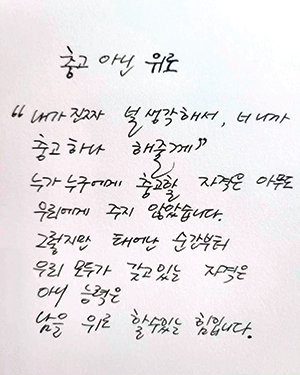 충고 아닌 위로
“내가 진짜 널 생각해서, 너니까
충고 하나 해줄게”
누가 누구에게 충고할 자격은 아무도
우리에게 주지 않았습니다.
그렇지만 태어난 순간부터
우리 모두가 갖고 있는 자격은
아니 능력은
남을 위로 할 수 있는 힘입니다.